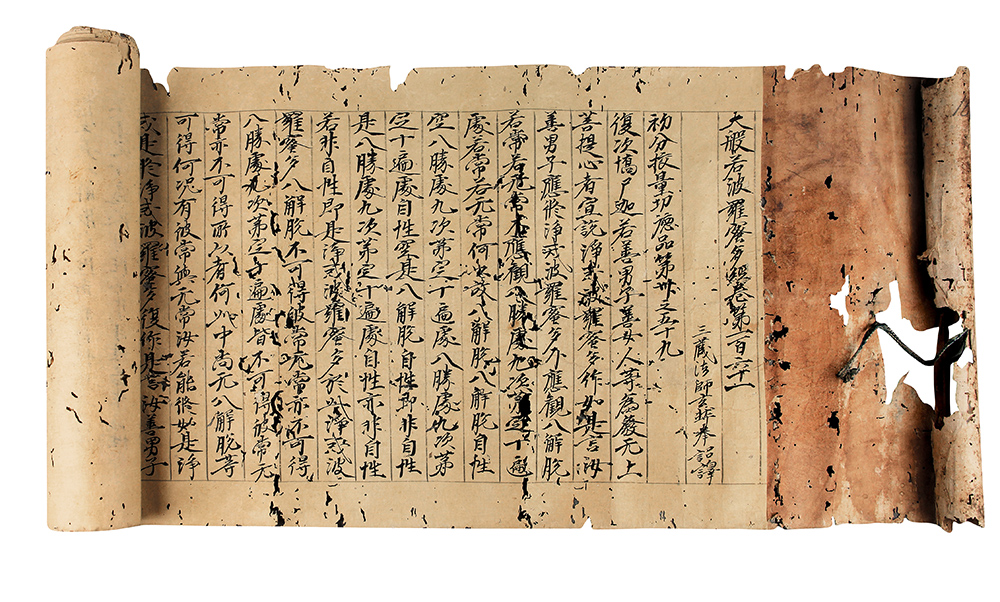 大般若波羅蜜多經卷第一百六十一
三藏法師玄奘奉 詔譯
初分挍量功德品第卅之五十九
復次憍尸迦若善男子善女人等為發无上
菩提心者宣說淨戒波羅蜜多作如是言汝
善男子應修淨戒波羅蜜多不應觀八解脫
若常若无常不應觀八勝處九次第定十遍
處若常若无常何以故八解脫八解脫自性
空八勝處九次第定十遍處八勝處九次第
定十遍處自性空是八解脫自性即非自性
是八勝處九次第定十遍處自性亦非自性
若非自性即是淨戒波羅蜜多於此淨戒波
羅蜜多八解脫不可得彼常无常亦不可得
八勝處九次第定十遍處皆不可得彼常无
常亦不可得所以者何此中尚无八解脫等
可得何況有彼常與无常汝若能修如是淨
戒是修淨戒波羅蜜多復作是言汝善男子